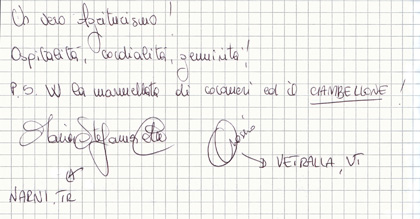 Un vero Agriturismo!
Ospitalità, cordialità, genuinità!
P.S. W la marmellata di cocomeri ed il CIAMBELLONE!
Maria Stefania
VETRALLA, VT
NARNI, TR